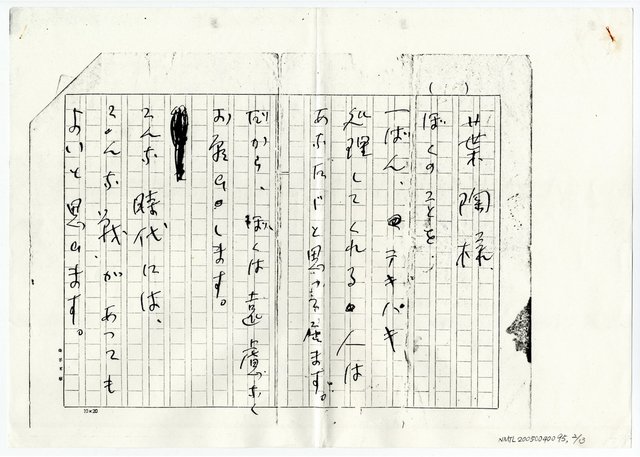 葉陶様
ぼくのことを、
一ばん、テキパキ
処理してくれる人は
あなたゞと思って居ます。
だから、ぼくは遠慮なく
お願いします。
こんな時代には、
こんな戦があっても
よいと思います。
10×20
NMTL20050040095, 2/13